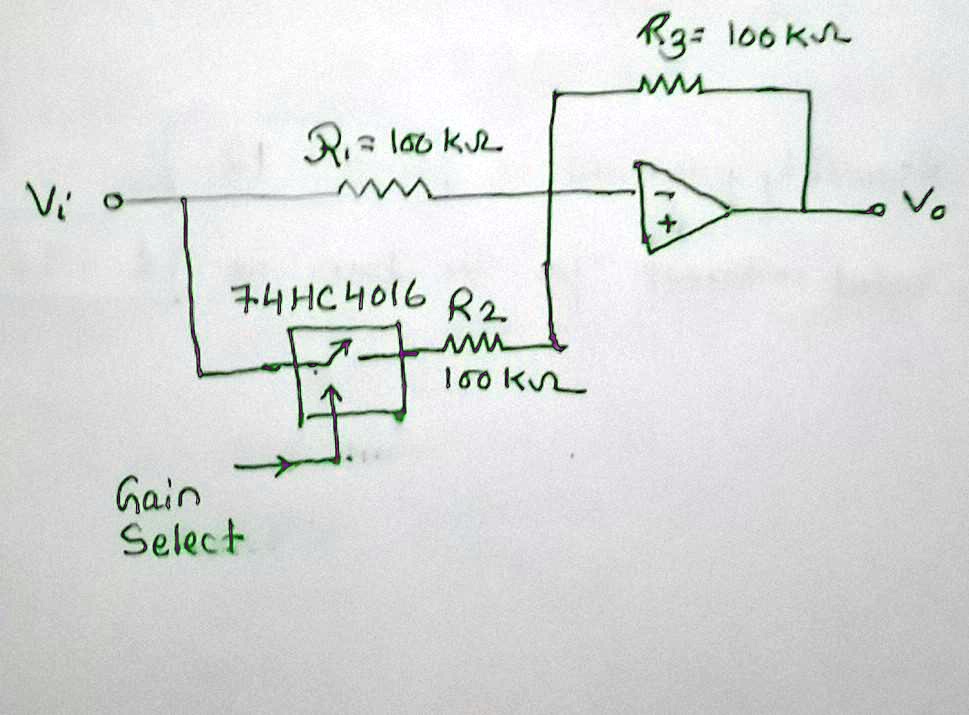 R3= 100 KΩ
R1= 100 KΩ
Vi
-
+
Vo
74HC4016
R2
100 KΩ
Gain
Select